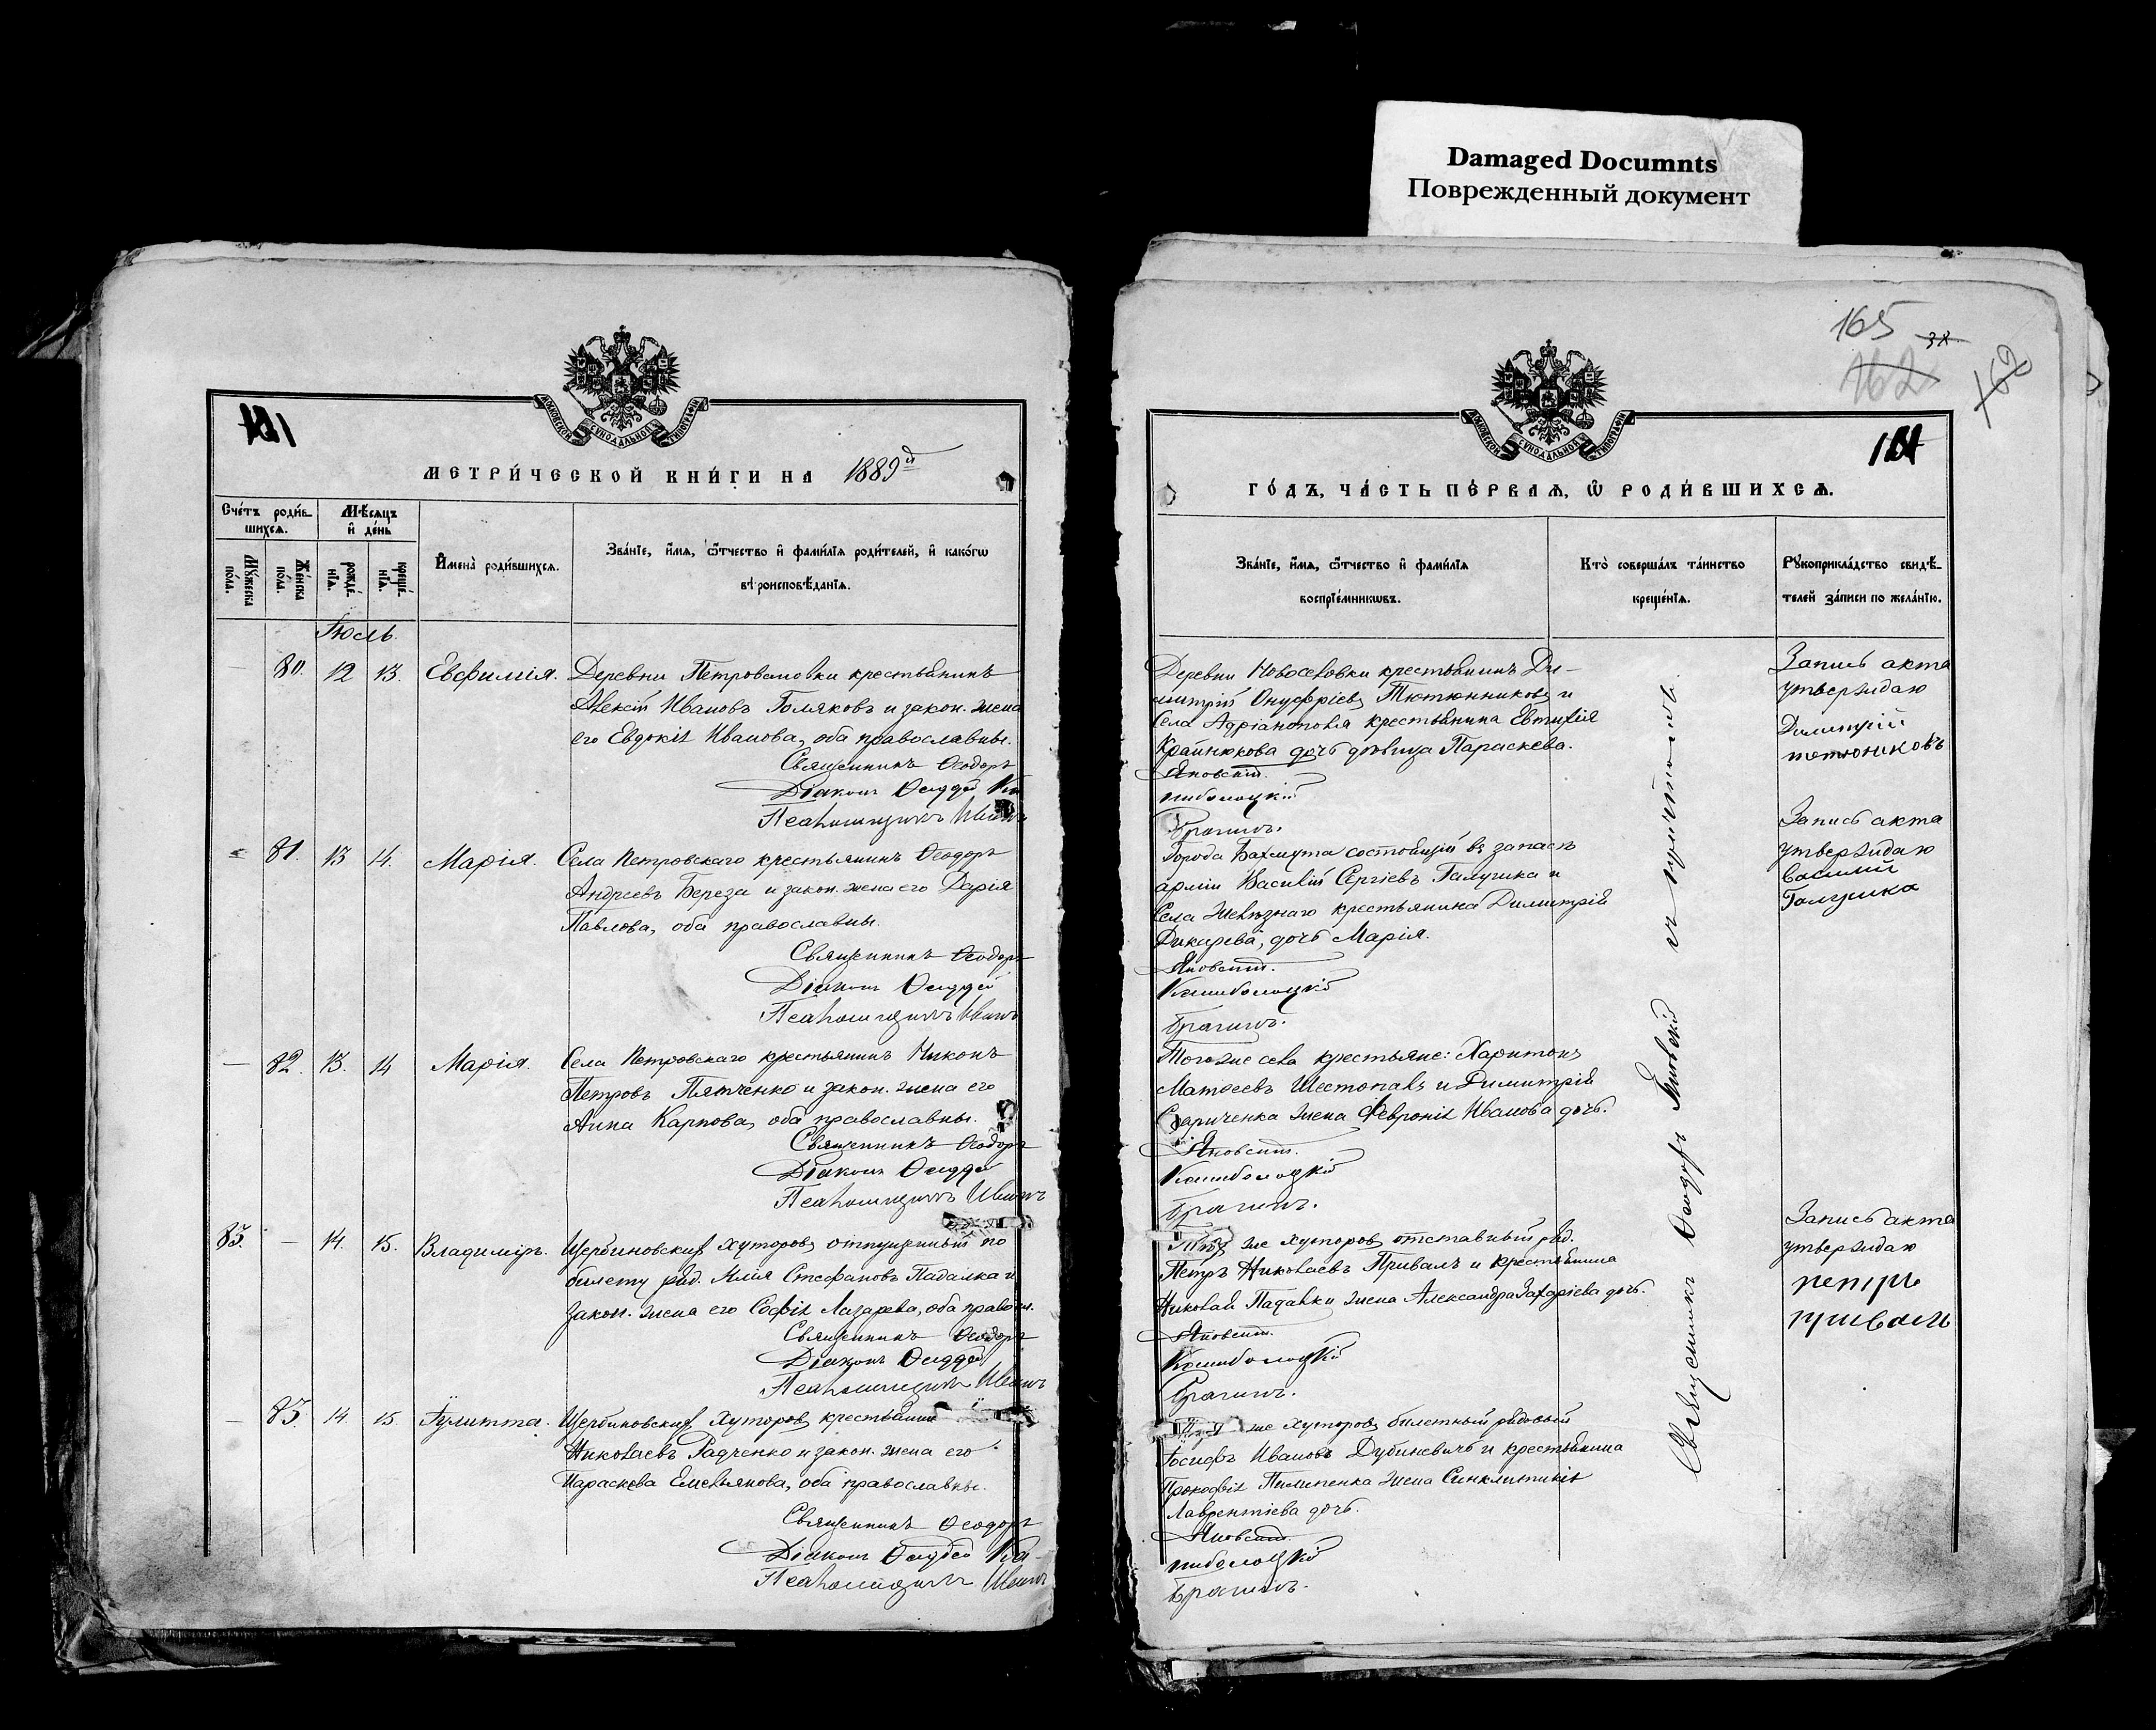 Damaged Documnts
Поврежденный документ
МЕТРИ́ЧЕСКОЙ КНИ́ГИ НА 1889
Сче́тъ роди́вшихся.
Мѣ́сяцъ и де́нь
Му́жеска по́ла.
Же́нска по́ла.
рожде́нїя.
креще́нїя.
И҆мена̀ роди́вшихся.
Зва́нїе, и҆́мя, ѻ҆́тчество и҆ фами́лїя роди́телей, и҆ како́гѡ
вѣроисповѣ́данїя.
Іюль.
— 80. 12 13. Евфимія. Деревни Петровеновки крестьянинъ
Алексій Ивановъ Голяковъ и закон. жена
его Евдокія Иванова, оба православны.
Священникъ Ѳеодоръ
Діаконъ Ѳаддей
Псаломщикъ Иванъ
— 81. 13 14. Марія. Села Петровскаго крестьянинъ Ѳеодоръ
Андреевъ Береза и закон. жена его Дарія
Павлова, оба православны.
Священникъ Ѳеодоръ
Діаконъ Ѳаддей
Псаломщикъ Иванъ
— 82. 13. 14 Марія. Села Петровскаго крестьянинъ Никонъ
Петровъ Пятченко и закон. жена его
Анна Карпова, оба православны.
Священникъ Ѳеодоръ
Діаконъ Ѳаддей
Псаломщикъ Иванъ
83. — 14. 15. Владиміръ. Щербиновскихъ хуторовъ отпущенный по
билету ряд. Илія Стефановъ Падалка и
закон. жена его Софія Лазарева, оба правосл.
Священникъ Ѳеодоръ
Діаконъ Ѳаддей
Псаломщикъ Иванъ
— 83. 14. 15 Іулитта. Щербиновскихъ хуторовъ крестьянинъ
Николаевъ Радченко и закон. жена его
Параскева Емельянова, оба православны.
Священникъ Ѳеодоръ
Діаконъ Ѳаддей
Псаломщикъ Иванъ
165
162
ГО́ДЪ, ЧА́СТЬ ПЕ́РВАЯ, Ѡ҆ РОДИ́ВШИХСЯ.
Зва́нїе, и҆́мя, ѻ҆́тчество и҆ фами́лїя
воспрїе́мникѡвъ.
Кто̀ соверша́лъ та́инство
креще́нїя.
Рꙋкоприкла́дство свидѣ́телей за́писи по жела́нїю.
Деревни Новоселовки крестьянинъ Димитрій Онуфріевъ Тютюнниковъ и
Села Адріанополя крестьянина Евтихія
Крайнюкова дочь дѣвица Параскева.
Яновскій.
Брагинъ.
Запись акта
утверждаю
Димитрій
Города Бахмута состоящій въ запасѣ
арміи Василій Сергіевъ Галушка и
Села Желѣзнаго крестьянина Димитрій
Дикарева, дочь Марія.
Яновскій.
Брагинъ.
Запись акта
утверждаю
василий
Тогоже села крестьяне: Харитонъ
Матѳеевъ Шестопалъ и Димитрій
жена Февронія Иванова дочь.
Яновскій.
Брагинъ.
же хуторовъ отставный ряд.
Петръ Николаевъ Привалъ и крестьянина
Николай Падалки жена Александра Захаріева дочь.
Яновскій.
Брагинъ.
Запись акта
утверждаю
петръ
привалъ
же хуторовъ билетный рядовый
Іосифъ Ивановъ Дубиневичъ и крестьянина
Прокофія Пилипенка жена Синклитикія
Лаврентіева дочь.
Яновскій.
Брагинъ.
Священникъ Ѳеодоръ Яновскій съ причтомъ.